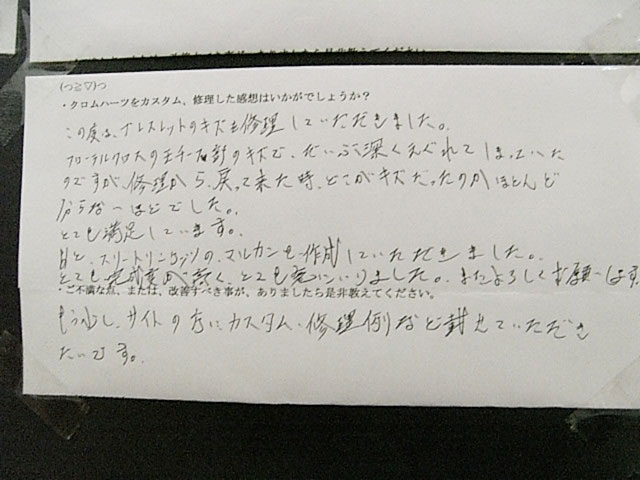 (つ≧▽)つ
・クロムハーツをカスタム、修理した感想はいかがでしょうか？
この度は、ブレスレットのキズを修理していただきました。
のキズで、だいぶ深くえぐれてしまっていた
のですが、修理から、戻って来た時、どこがキズだったのかほとんど
分らないほどでした。
とても満足しています。
あと、スリートリンカッツの、マルカンも作成していただきました。
とても完成度が高く、とても気にいりました。またよろしくお願いします。
・ご不満な点、または、改善すべき事が、ありましたら是非教えてください。
もう少し、サイトの方にカスタム・修理例など載せていただき
たいです。